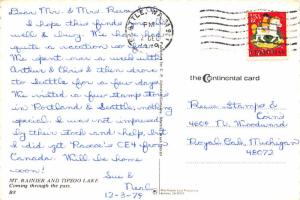 Dear Mr. & Mrs. Reeve
I hope this finds you
well & busy. We have had
quite a vacation so far.
We spent over a week with
Arthur & Chris & then drove
to Seattle for a few days.
We visited a few stamp stores
in Portland & Seattle, nothing
special. I was not impressed
by their stock and help, but
I did get Roscoe's CE4 from
Canada. Will be home
soon!
Sue &
12-3-79
MT. RAINIER AND TIPSOO LAKE
Coming through the pass.
SEATTLE, WA
PM
DEC
1979
the Continental card
Reeve Stamps &
Coins
4804 N. Woodward
Royal Oak, Michigan
48072